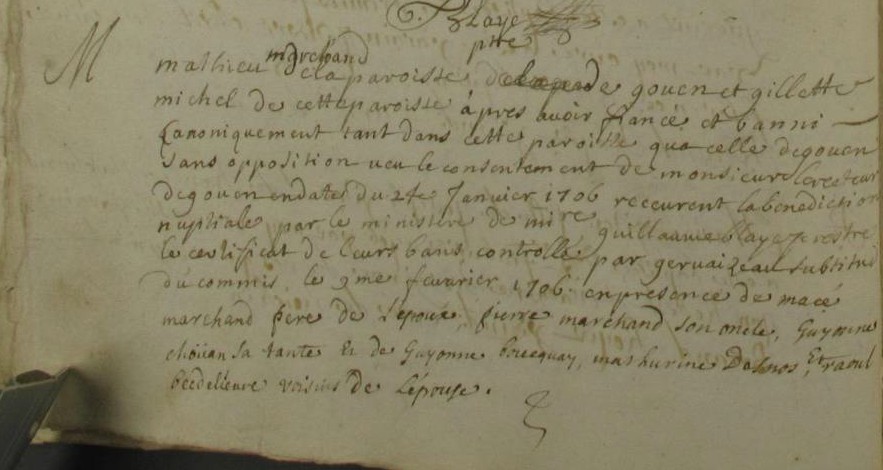 G. Blaye
ptre
M
mathieu marchand de la paroisse de gouen et gillette
michel de cette paroisse âpres avoir fiancé et banni
Canoniquement tant dans cette paroisse qua celle de gouen
sans opposition veu le consentement de monsieur le recteur
de gouen endate du 24e Janvier 1706 receurent la benediction
nuptiale par le ministere de mire guillaume blaye prestre
le certificat de leurs bans controllé par gervaizeau substitut
du commis le 9me feuvrier 1706 en presence de macé
marchand pere de Lepoux, pierre marchand son oncle, Guyonne
choüan sa tante Et de Guyonne boucquay, mathurine Dasnos, Et raoul
becdelieure voisins de Lepouse.